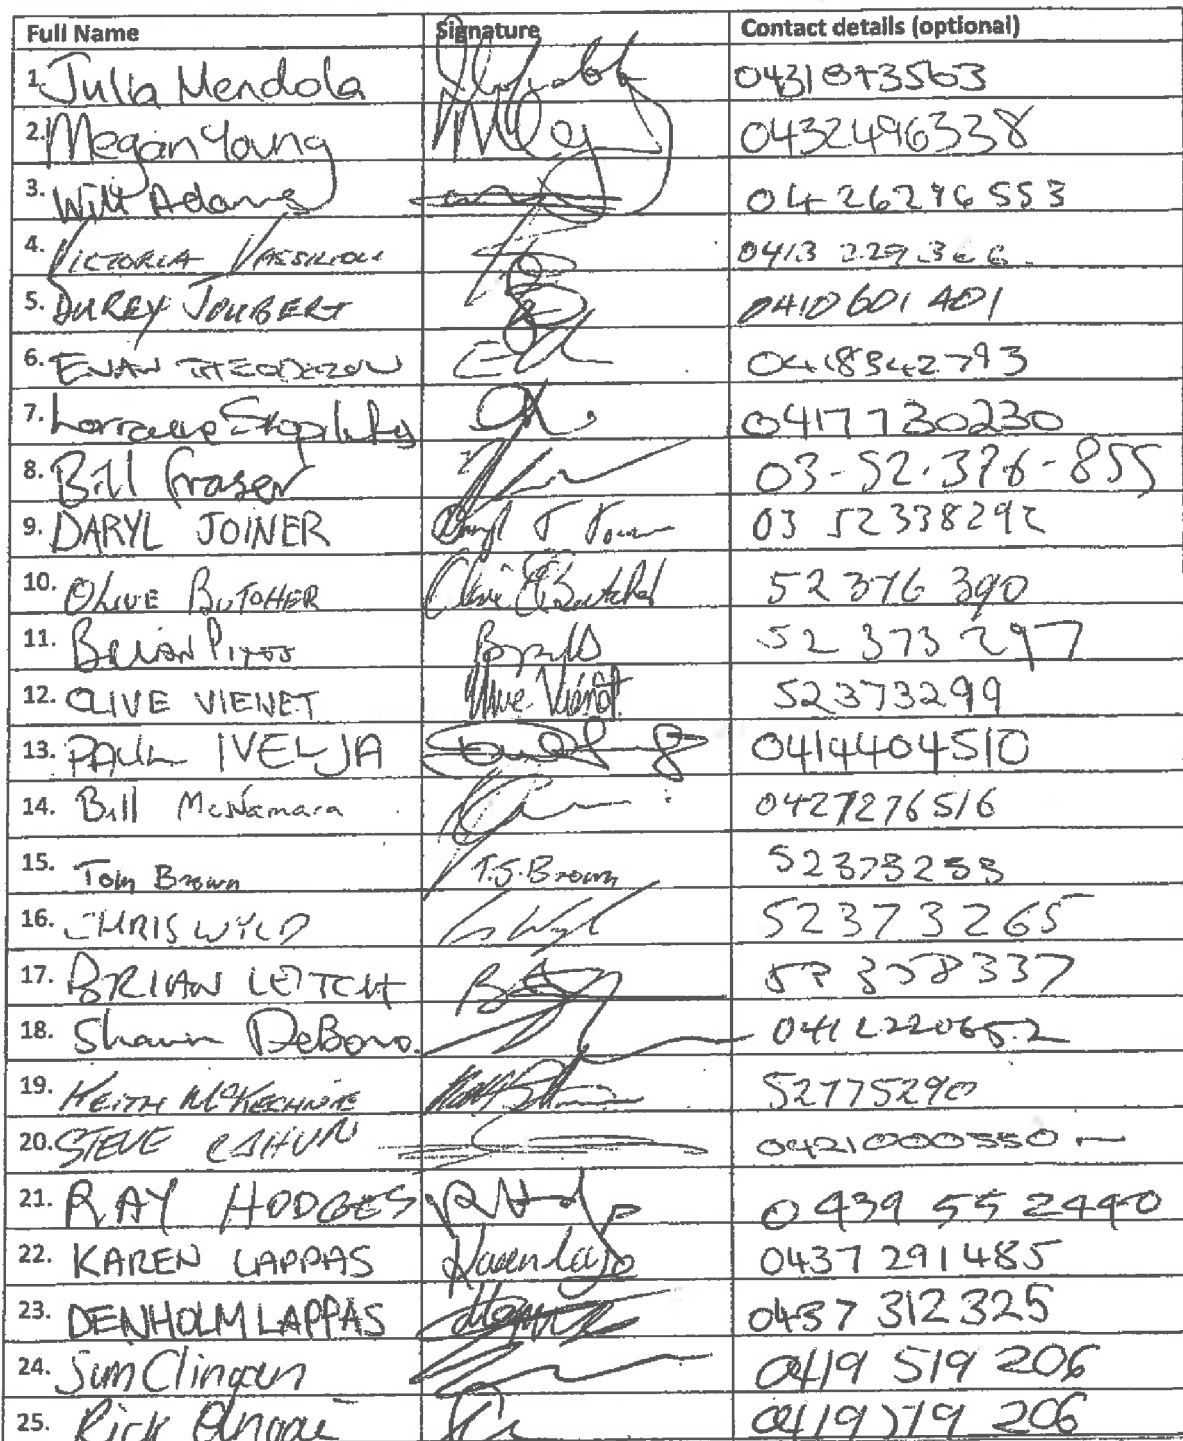 Full Name Signature Contact details (optional)
1. Julia Mendola 0431073563
2. Megan Young 0432496338
3. Will Adams 0426276553
4. VICTORIA VASSILIOU 0413 229 366
5. JOUBERT 0410 601 401
6. EVAN 0418342793
7. Lorraine 0417730230
8. Bill Fraser 03-52-376-855
9. DARYL JOINER 03 52338292
10. OLIVE BUTCHER 52 376 390
11. Brian 52 373 297
12. CLIVE VIENET Clive Viénot 52373299
13. PAUL IVELJA 0414404510
14. Bill McNamara 0427276516
15. Tom Brown T.J. Brown 52373253
16. CHRIS WYLD 52373265
17. BRIAN LEITCH
18. Shaun DeBono. 0412220652
19. KEITH McKECHNIE 52775290
20. STEVE 0421000550
21. RAY HODGES 0439 55 2440
22. KAREN LAPPAS 0437 291 485
23. DENHOLM LAPPAS 0437 312 325
24. Clingan 0419 519 206
25. Rick 0419 519 206